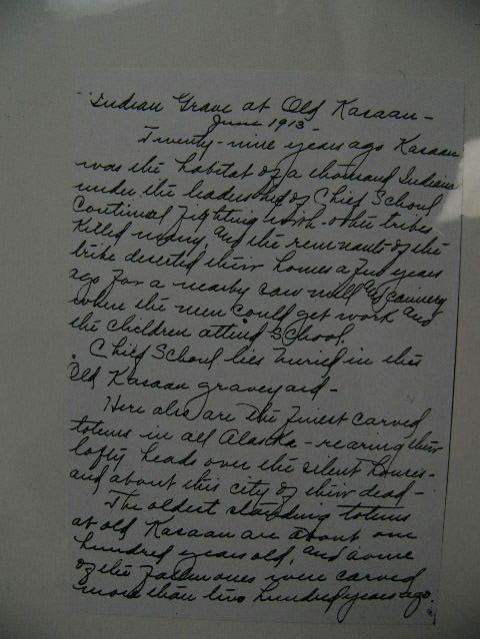 "Indian Grave at Old Kasaan -
June 1913 -
Twenty-nine years ago Kasaan
was the habitat of a thousand Indians
under the leadership of Chief Schoul
Continual fighting with other tribes
killed many, and the remnants of the
tribe deserted their homes a few years
ago for a nearby saw mill and cannery
where the men could get work and
the children attend School.
Chief Schoul lies buried in this
Old Kasaan graveyard -
Here also are the finest carved
totems in all Alaska - rearing their
lofty heads over the silent houses -
and about this city of their dead -
The oldest standing totems
at old Kasaan are about one
hundred years old, and some
of the fallen ones were carved
more than two hundred years ago.